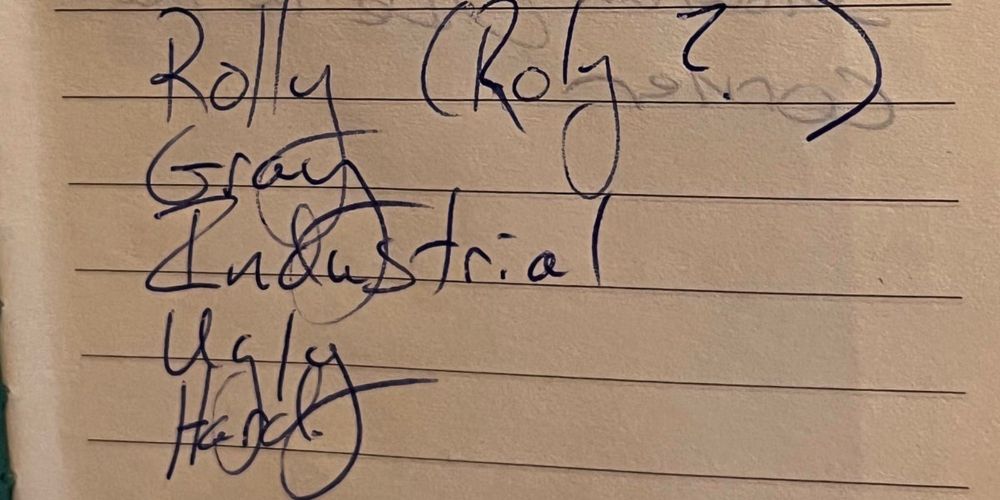 Rolly (Roly?)
Gray
Industrial
Ugly
Hard.